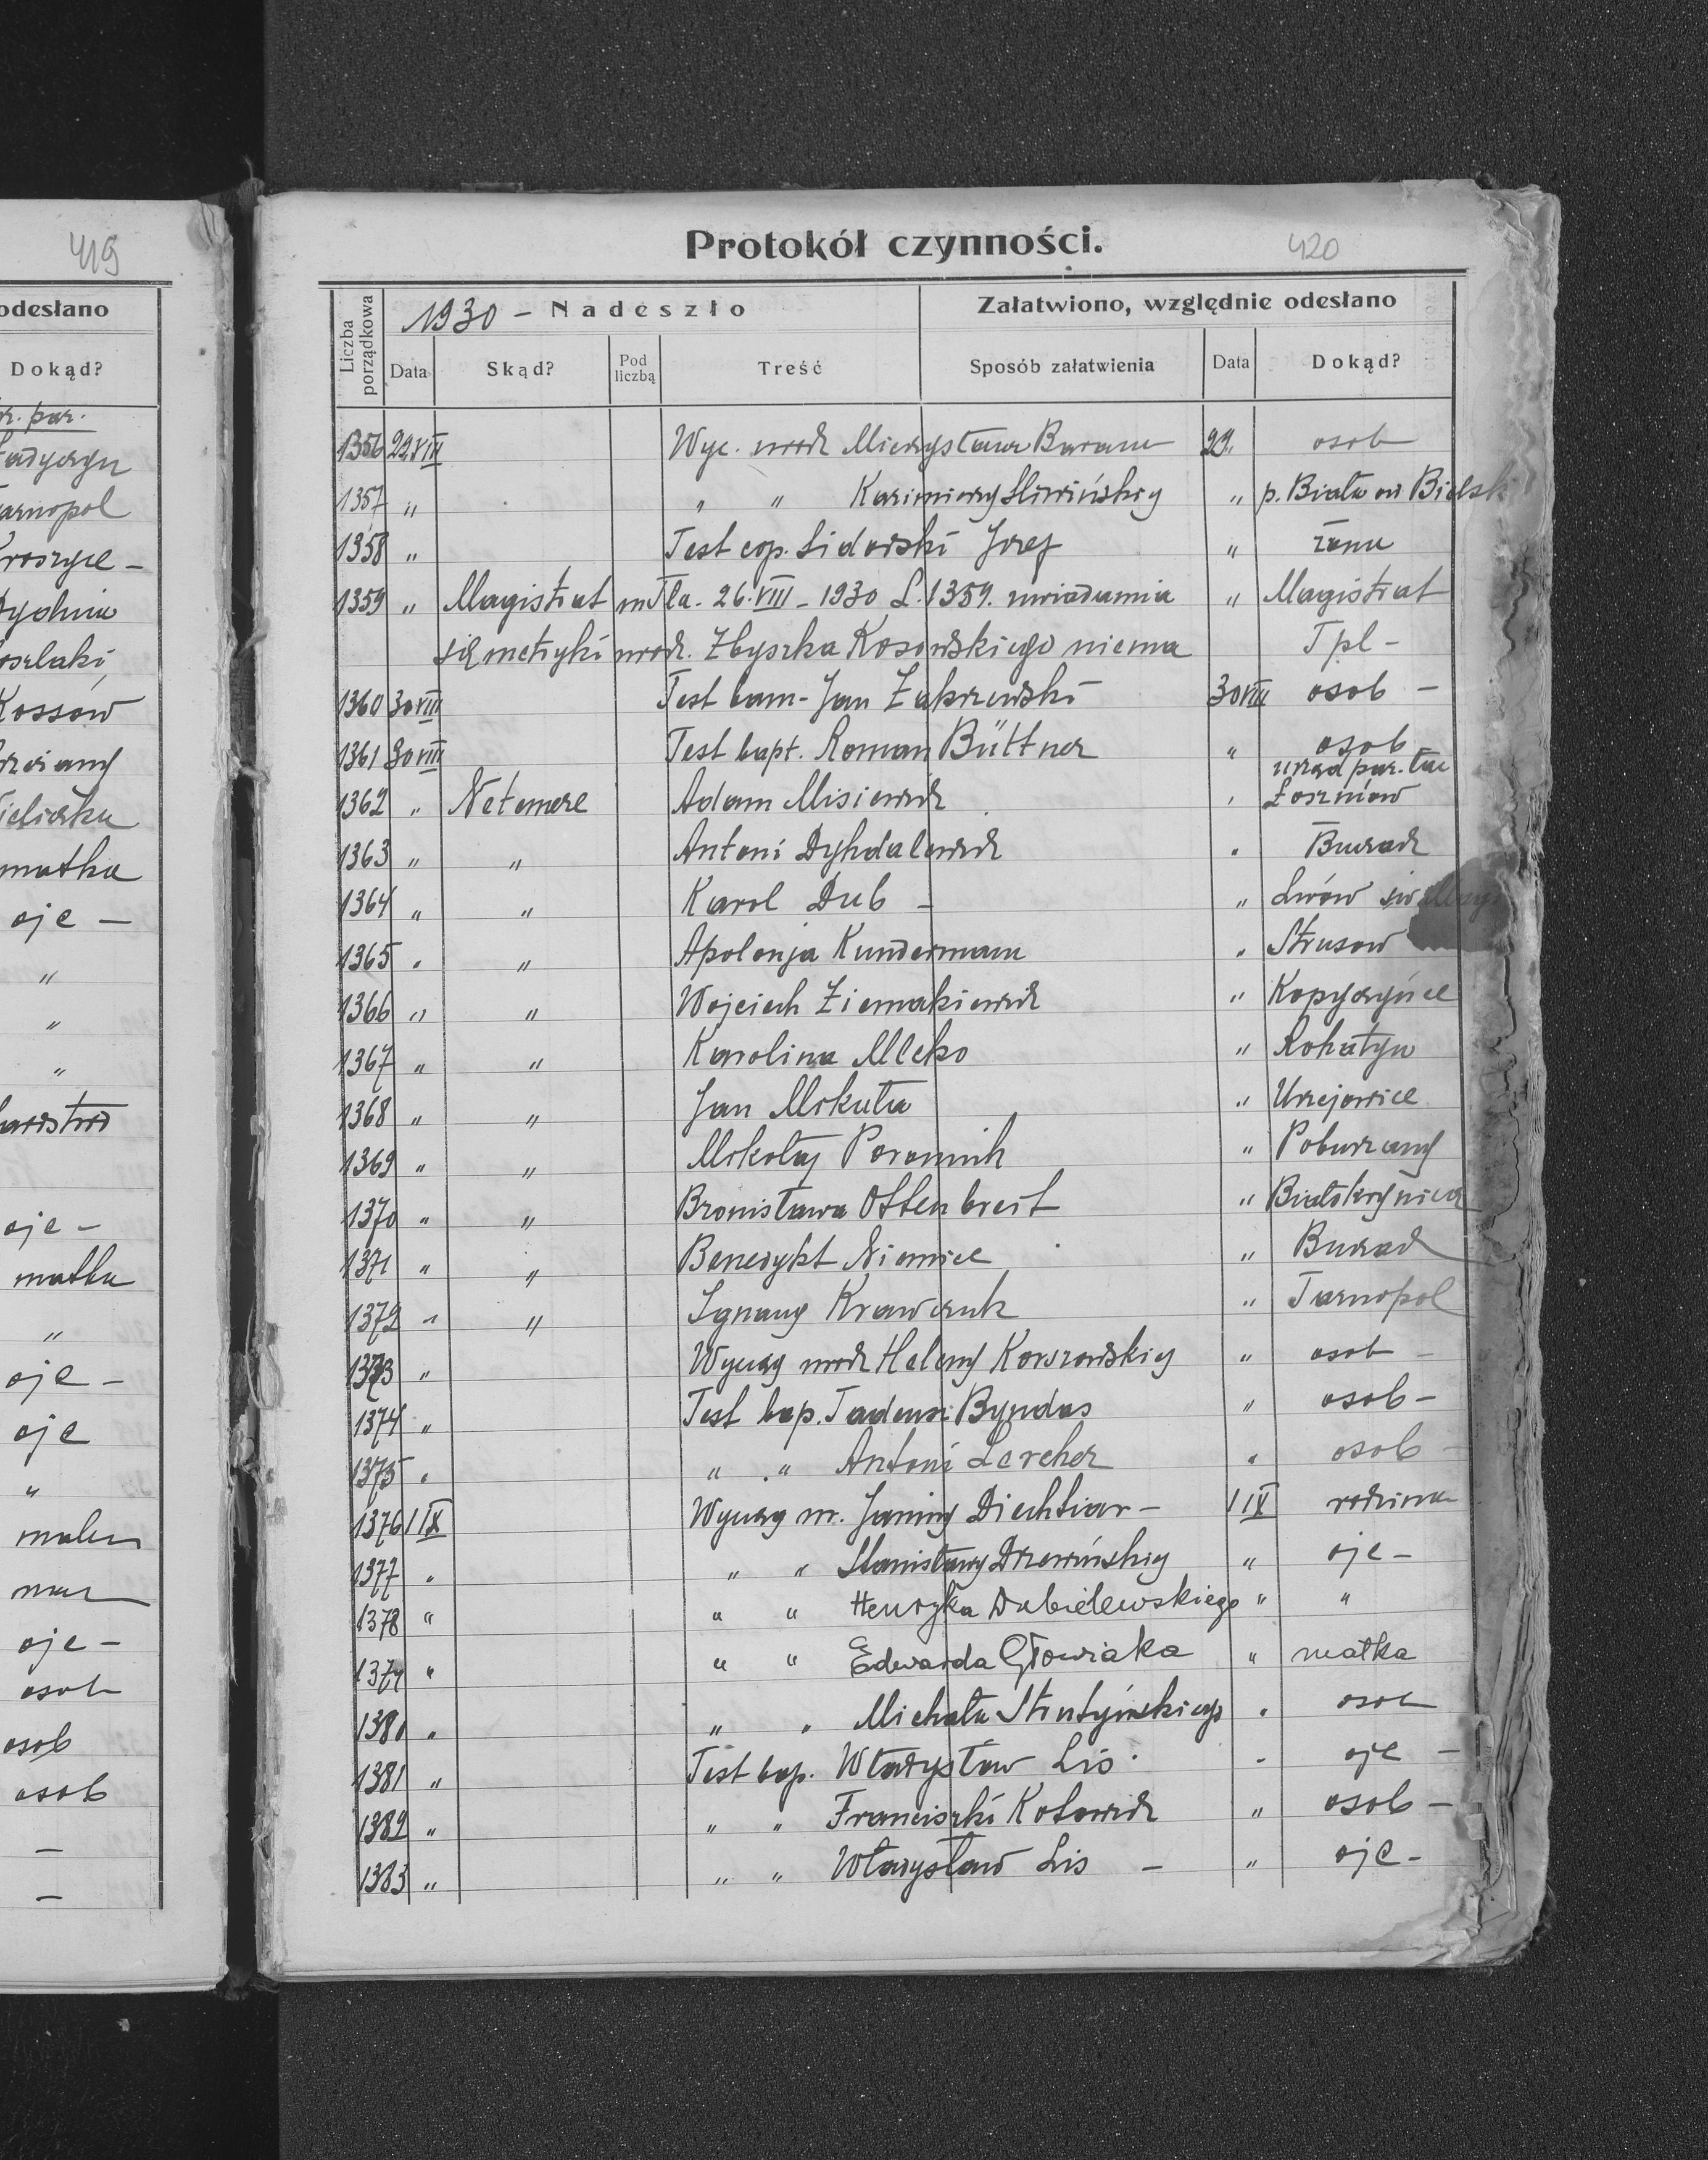 419
odesłano
Dokąd?
Tarnopol
Kossów
matka
ojc —
"
"
"
ojc —
matka
"
ojc —
ojc
"
ojc —
osob
osob
osob
—
—
Protokół czynności.
420
Liczba porządkowa
1930 – Nadeszło
Załatwiono, względnie odesłano
Data Skąd? Pod liczbą Treść Sposób załatwienia Data Dokąd?
1356 29 VIII Wyc. urodz Mieczysława Barana 29 " osob
1357 " " " Kazimiery Śliwińskiej " p. Biała ad Bielsk
1358 " Test cop. Sidorski Józef " żona
1359 " Magistrat m Tla. 26.VIII – 1930 L. 1359. uwiadamia " Magistrat
się metryki urodz. Zbyszka Kosowskiego niema Tpl –
1360 30 VIII Test bam – Jan Zakrzewski 30 VIII osob –
1361 30 VIII Test bapt. Roman Büttner " osob
urząd par. łac
1362 " Ne temere Adam Misiewicz " Łoszniów
1363 " " Antoni Dyhdalewicz " Buczacz
1364 " " Karol Dub – " Lwów św
1365 " " Apolonja Kunderman " Strusow
1366 " " Wojciech Ziemakiewicz " Kopyczyńce
1367 " " Karolina Mleko " Rohatyn
1368 " " Jan Mikuła " Urzejowice
1369 " " Mikołaj Poromnik " Pobużany
1370 " " Bronisława Ottenbreit " Białokrynica
1371 " " Benedykt Niemiec " Buczacz
1372 " " Ignacy Krawczuk " Tarnopol
1373 " Wyciąg urodz Heleny Korszowskiej " osob –
1374 " Test bap. Tadeusz Byndas " osob –
1375 " " " Antoni Lercher " osob –
1376 1 IX Wyciąg ur. Janiny Diechtiar – 1 IX rodzina
1377 " " " Stanisławy Drzewińskiej " ojc –
1378 " " " Henryka Dubielewskiego " "
1379 " " " Edwarda Głowiaka " matka
1380 " " " Michała Strutyńskiego " osob
1381 " Test bap. Władysław Lis " ojc –
1382 " " " Franciszki Kotowicz " osob –
1383 " " " Władysław Lis – " ojc –